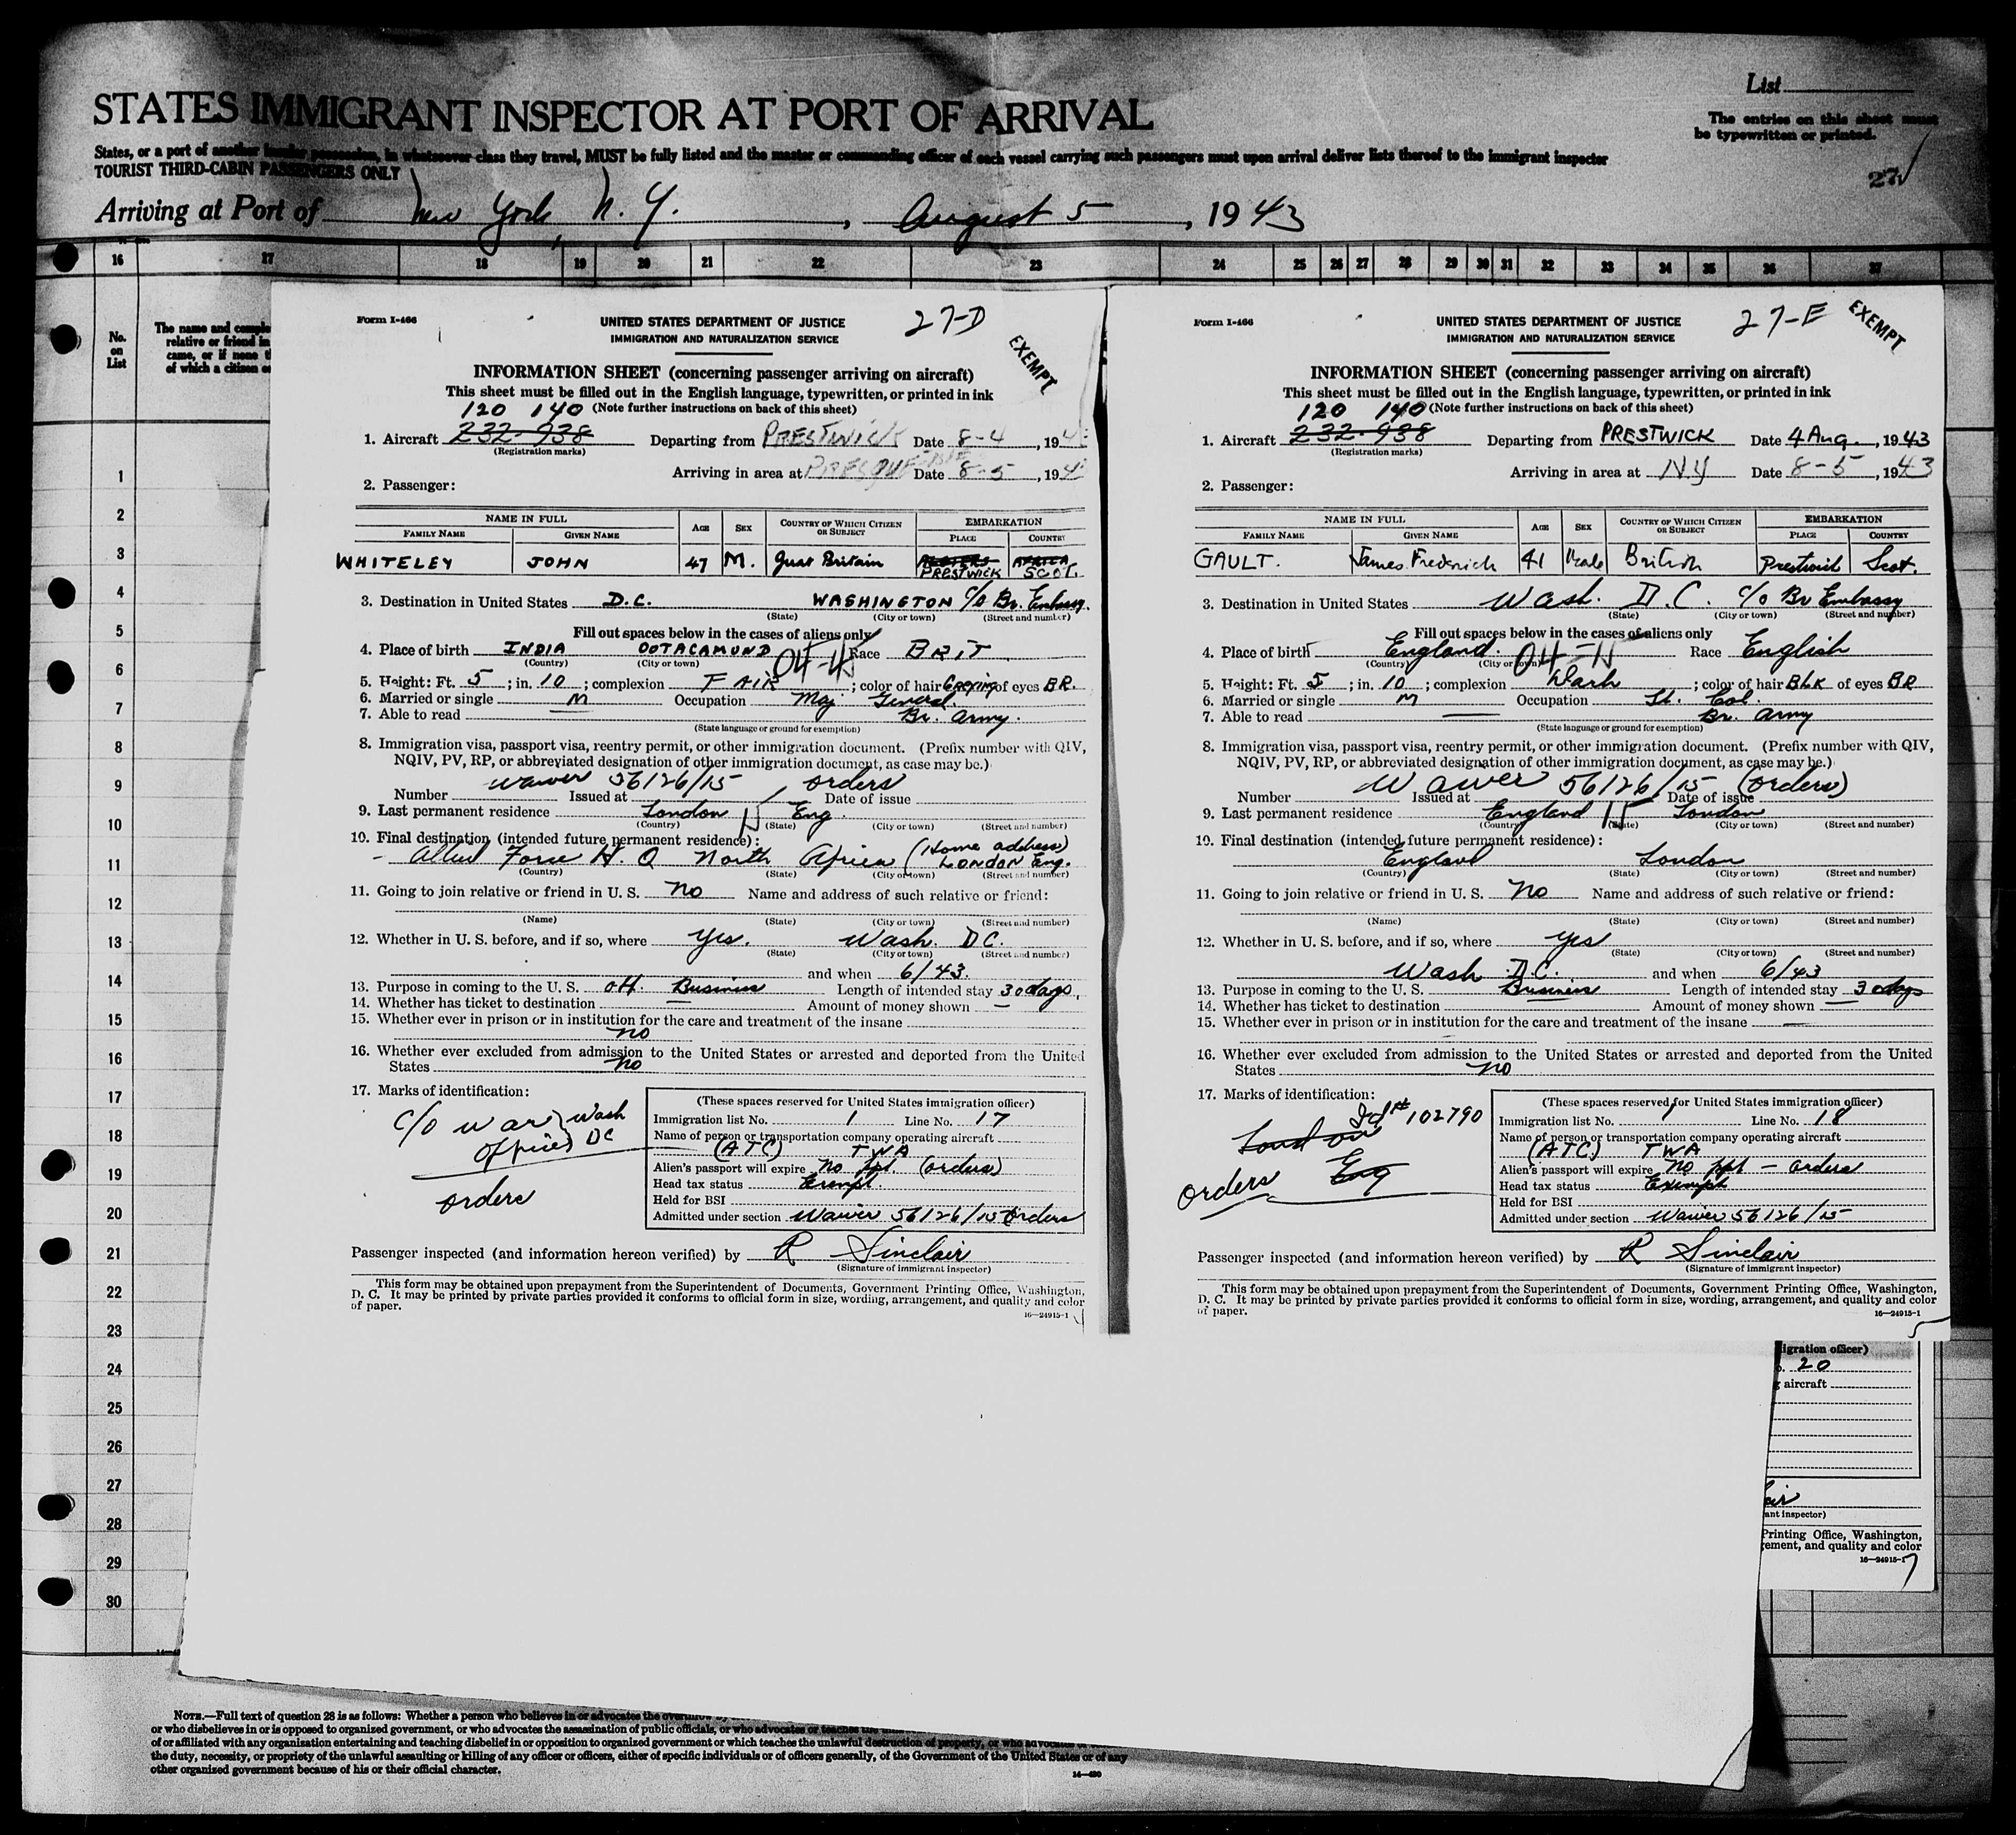 STATES IMMIGRANT INSPECTOR AT PORT OF ARRIVAL
List
The entries on this sheet must
be typewritten or printed.
States, or a port of another insular possession, in whatsoever class they travel, MUST be fully listed and the master or commanding officer of each vessel carrying such passengers must upon arrival deliver lists thereof to the immigrant inspector
TOURIST THIRD-CABIN PASSENGERS ONLY
27
Arriving at Port of New York, N.Y., August 5, 1943
16 17 18 19 20 21 22 23 24 25 26 27 28 29 30 31 32 33 34 35 36 37
No.
on
List
The name and comple
relative or friend in
came, or if none t
of which a citizen o
1
2
3
4
5
6
7
8
9
10
11
12
13
14
15
16
17
18
19
20
21
22
23
24
25
26
27
28
29
30
Form I-466
UNITED STATES DEPARTMENT OF JUSTICE
27-D
IMMIGRATION AND NATURALIZATION SERVICE
EXEMPT
INFORMATION SHEET (concerning passenger arriving on aircraft)
This sheet must be filled out in the English language, typewritten, or printed in ink
120 140 (Note further instructions on back of this sheet)
1. Aircraft 232-938 Departing from PRESTWICK Date 8-4, 194
(Registration marks)
Arriving in area at PRESQUE ISLE Date 8-5, 194
2. Passenger:
NAME IN FULL AGE SEX COUNTRY OF WHICH CITIZEN OR SUBJECT EMBARKATION
FAMILY NAME GIVEN NAME PLACE COUNTRY
WHITELEY JOHN 47 M. Great Britain ALGIERS AFRICA
PRESTWICK SCOT.
3. Destination in United States D.C. WASHINGTON c/o Br. Embassy.
(State) (City or town) (Street and number)
Fill out spaces below in the cases of aliens only
4. Place of birth INDIA OOTACAMUND Race BRIT
(Country) (City or town) 04-4
5. Height: Ft. 5; in. 10; complexion FAIR; color of hair Greying of eyes BR.
6. Married or single M Occupation Maj. General.
7. Able to read — Br. Army.
(State language or ground for exemption)
8. Immigration visa, passport visa, reentry permit, or other immigration document. (Prefix number with QIV,
NQIV, PV, RP, or abbreviated designation of other immigration document, as case may be.)
Number waiver 56126/15 Issued at orders Date of issue
9. Last permanent residence London 15 Eng.
(Country) (State) (City or town) (Street and number)
10. Final destination (intended future permanent residence): (Home address)
- Allied Force H.Q North Africa LONDON Eng.
(Country) (State) (City or town) (Street and number)
11. Going to join relative or friend in U. S. No Name and address of such relative or friend:
(Name) (State) (City or town) (Street and number)
12. Whether in U. S. before, and if so, where yes. Wash. D.C.
(State) (City or town) (Street and number)
and when 6/43.
13. Purpose in coming to the U. S. off Business Length of intended stay 30 days.
14. Whether has ticket to destination — Amount of money shown —
15. Whether ever in prison or in institution for the care and treatment of the insane
No
16. Whether ever excluded from admission to the United States or arrested and deported from the United
States No
17. Marks of identification:
c/o War Office Wash DC
orders
(These spaces reserved for United States immigration officer)
Immigration list No. 1 Line No. 17
Name of person or transportation company operating aircraft
(ATC) TWA
Alien's passport will expire No ppt. (orders)
Head tax status Exempt.
Held for BSI
Admitted under section Waiver 56126/15 Orders
Passenger inspected (and information hereon verified) by R Sinclair
(Signature of immigrant inspector)
This form may be obtained upon prepayment from the Superintendent of Documents, Government Printing Office, Washington,
D. C. It may be printed by private parties provided it conforms to official form in size, wording, arrangement, and quality and color
of paper.
16—24915-1
Form I-466
UNITED STATES DEPARTMENT OF JUSTICE
27-E
IMMIGRATION AND NATURALIZATION SERVICE
EXEMPT
INFORMATION SHEET (concerning passenger arriving on aircraft)
This sheet must be filled out in the English language, typewritten, or printed in ink
120 140 (Note further instructions on back of this sheet)
1. Aircraft 232-938 Departing from PRESTWICK Date 4 Aug., 1943
(Registration marks)
Arriving in area at NY Date 8-5, 1943
2. Passenger:
NAME IN FULL AGE SEX COUNTRY OF WHICH CITIZEN OR SUBJECT EMBARKATION
FAMILY NAME GIVEN NAME PLACE COUNTRY
GAULT. James Frederick 41 Male British Prestwick Scot.
3. Destination in United States Wash. D.C. c/o Br Embassy
(State) (City or town) (Street and number)
Fill out spaces below in the cases of aliens only
4. Place of birth England. Race English
(Country) (City or town)
5. Height: Ft. 5; in. 10; complexion Dark; color of hair Blk of eyes BR
6. Married or single M Occupation Lt. Col.
7. Able to read — Br. Army
(State language or ground for exemption)
8. Immigration visa, passport visa, reentry permit, or other immigration document. (Prefix number with QIV,
NQIV, PV, RP, or abbreviated designation of other immigration document, as case may be.)
Waiver 56126/15 (orders)
Number Issued at Date of issue
9. Last permanent residence England 15 London
(Country) (State) (City or town) (Street and number)
10. Final destination (intended future permanent residence):
England London
(Country) (State) (City or town) (Street and number)
11. Going to join relative or friend in U. S. No Name and address of such relative or friend:
(Name) (State) (City or town) (Street and number)
12. Whether in U. S. before, and if so, where yes
(State) (City or town) (Street and number)
Wash D.C. and when 6/43
13. Purpose in coming to the U. S. Business Length of intended stay 30 days
14. Whether has ticket to destination — Amount of money shown —
15. Whether ever in prison or in institution for the care and treatment of the insane —
16. Whether ever excluded from admission to the United States or arrested and deported from the United
States No
17. Marks of identification:
Id# 102790
London
Eng
orders
(These spaces reserved for United States immigration officer)
Immigration list No. 1 Line No. 18
Name of person or transportation company operating aircraft
(ATC) TWA
Alien's passport will expire No ppt - orders
Head tax status Exempt
Held for BSI
Admitted under section Waiver 56126/15
Passenger inspected (and information hereon verified) by R Sinclair
(Signature of immigrant inspector)
This form may be obtained upon prepayment from the Superintendent of Documents, Government Printing Office, Washington,
D. C. It may be printed by private parties provided it conforms to official form in size, wording, arrangement, and quality and color
of paper.
16—24915-1
5
igration officer)
20
aircraft
air
ant inspector)
Printing Office, Washington,
ement, and quality and color
16—24915-1
7
NOTE.—Full text of question 28 is as follows: Whether a person who believes in or advocates the overthrow
or who disbelieves in or is opposed to organized government, or who advocates the assassination of public officials, or who advocates or teaches the
of or affiliated with any organization entertaining and teaching disbelief in or opposition to organized government or which teaches the unlawful destruction of property, or who advocates
the duty, necessity, or propriety of the unlawful assaulting or killing of any officer or officers, either of specific individuals or of officers generally, of the Government of the United States or of any
other organized government because of his or their official character.
14—490